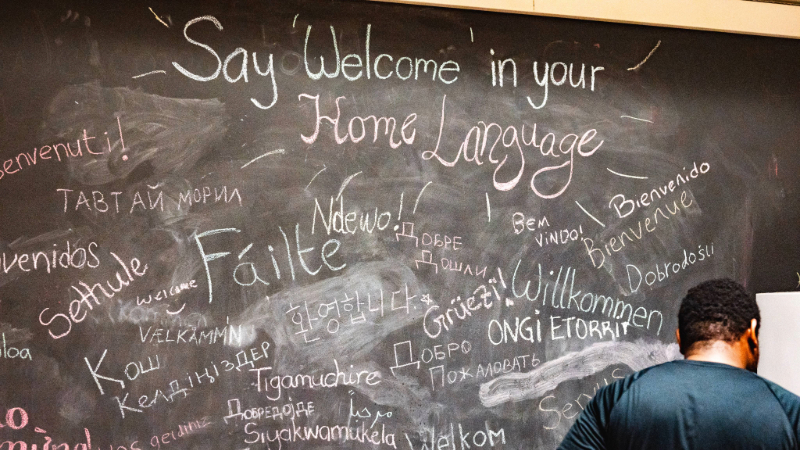 Say 'Welcome' in your
Home Language
Benvenuti!
ТАВТАЙ МОРИЛ
Ndewo!
Bienvenido
Bem
vindo!
Bienvenue
Fáilte
Добре
Дошли
Sethule
Welcome
Willkommen
Dobrodošli
환영합니다
Grüezi!
VÆLKÅMM'N
ONGI ETORRI
Кош
Келдіңіздер
Добро
Пожаловать
Tigamuchire
Добредојде
مرحبا
Siyakwamukela
Servus